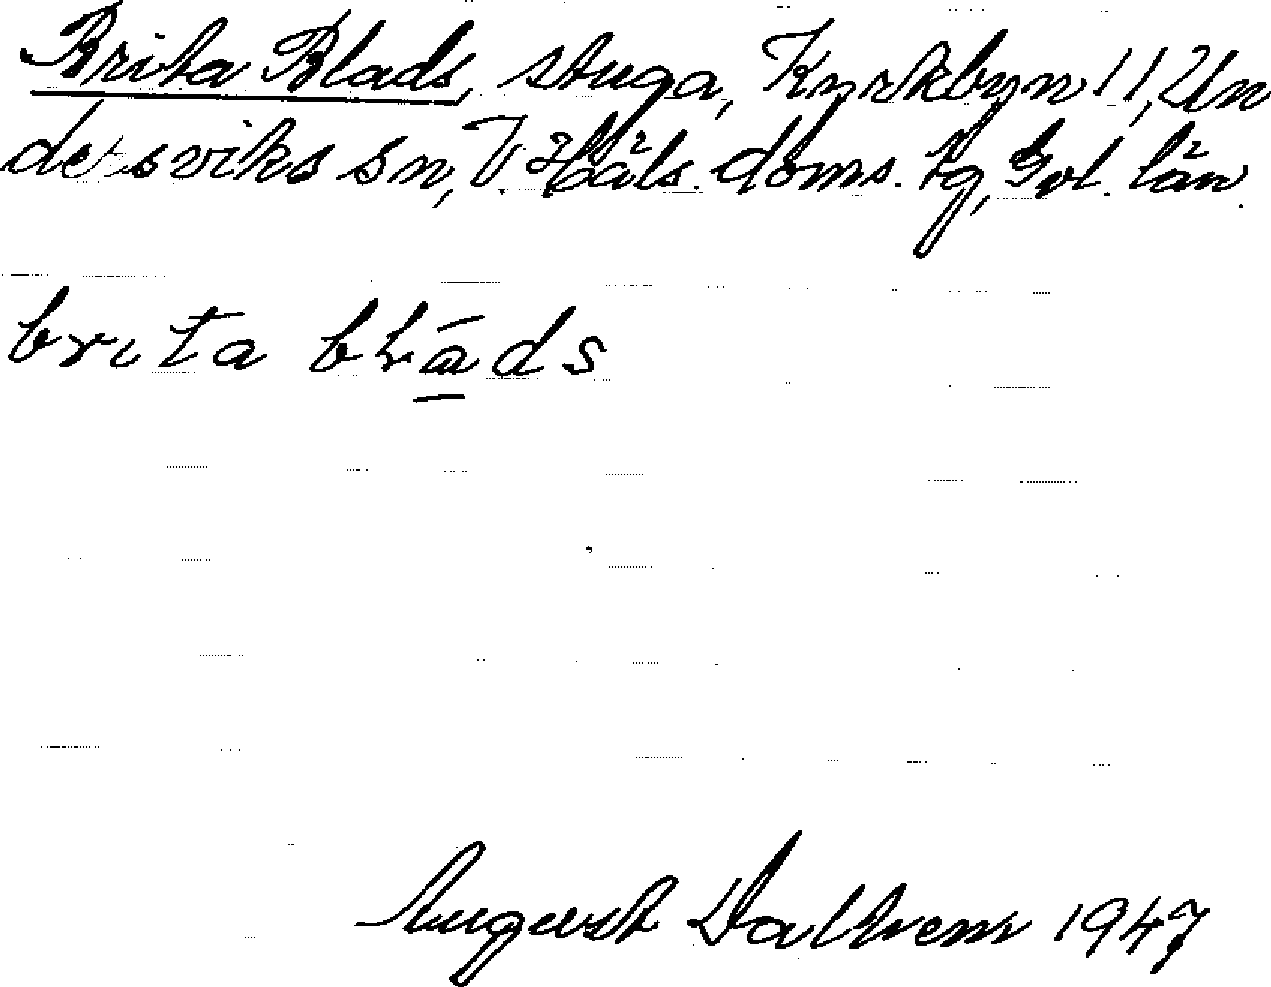 Brita Blads, stuga, Kyrkbyn 11, Un
dersviks sn, V Häls. doms. hg, Gvl. län.
brita blāds
August Dalhem 1947